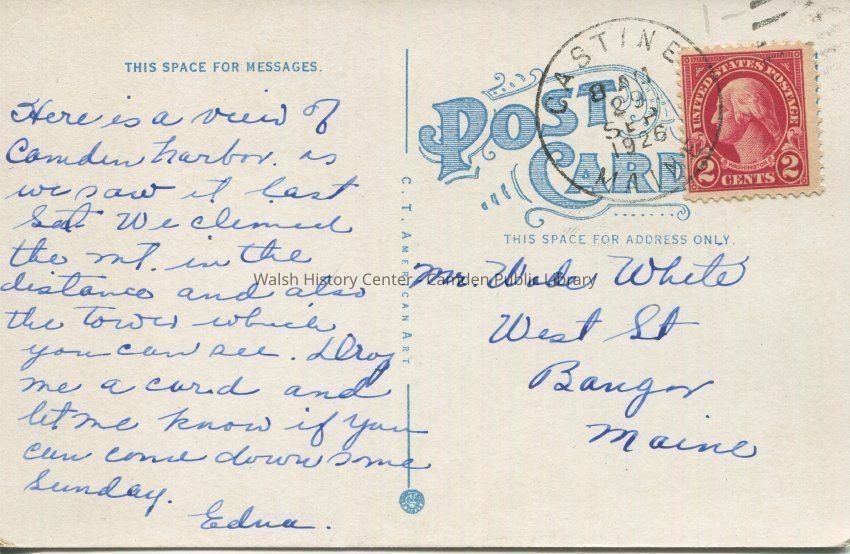 THIS SPACE FOR MESSAGES.
Here is a view of
Camden harbor. as
we saw it last
Sat. We clemed
the mt. in the
distance and also
the tower which
you can see. Drop
me a card and
let me know if you
can come down some
Sunday.
Edna.
C. T. AMERICAN ART
POST CARD
CASTINE
8 AM
SEP
1926
MAINE
UNITED STATES POSTAGE
WASHINGTON
2 CENTS 2
THIS SPACE FOR ADDRESS ONLY.
Walsh History Center - Camden Public Library
Mr. Wade White
West St
Bangor
Maine